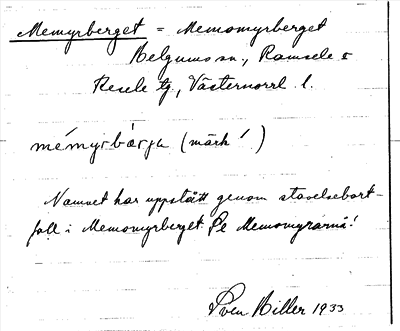 Memyrberget = Memomyrberget
Helgums sn., Ramsele o
Resele tg., Västernorrl. l.
mémyrbärja (märk ´)
Namnet har uppstått genom stavelsebort-
fall i Memomyrberget. Se Memomyrarna!
Sven Hiller 1933